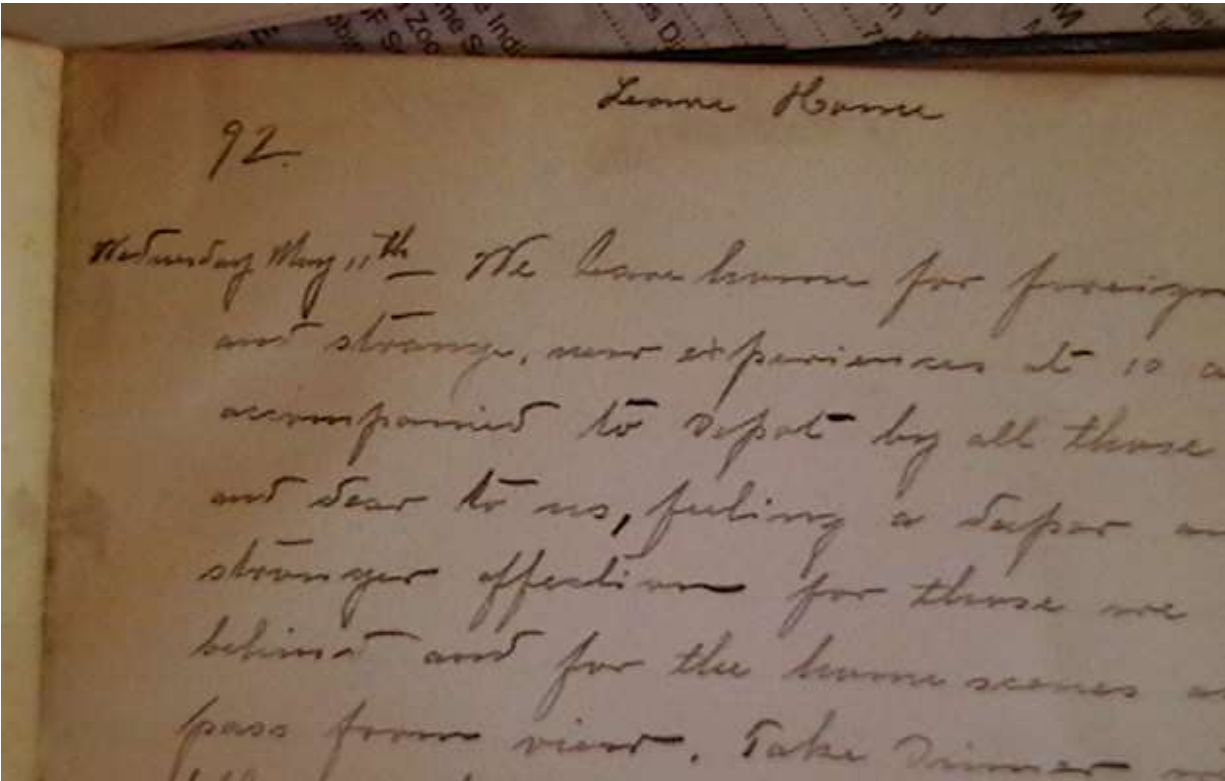 Leave Home
92.
Wednesday May 11th We leave home for foreign
and strange, new experiences at 10 a
accompanied to Depot by all those
and dear to us, feeling a deeper an
stronger affection for those we
behind and for the home scenes a
pass from view. Take Dinner